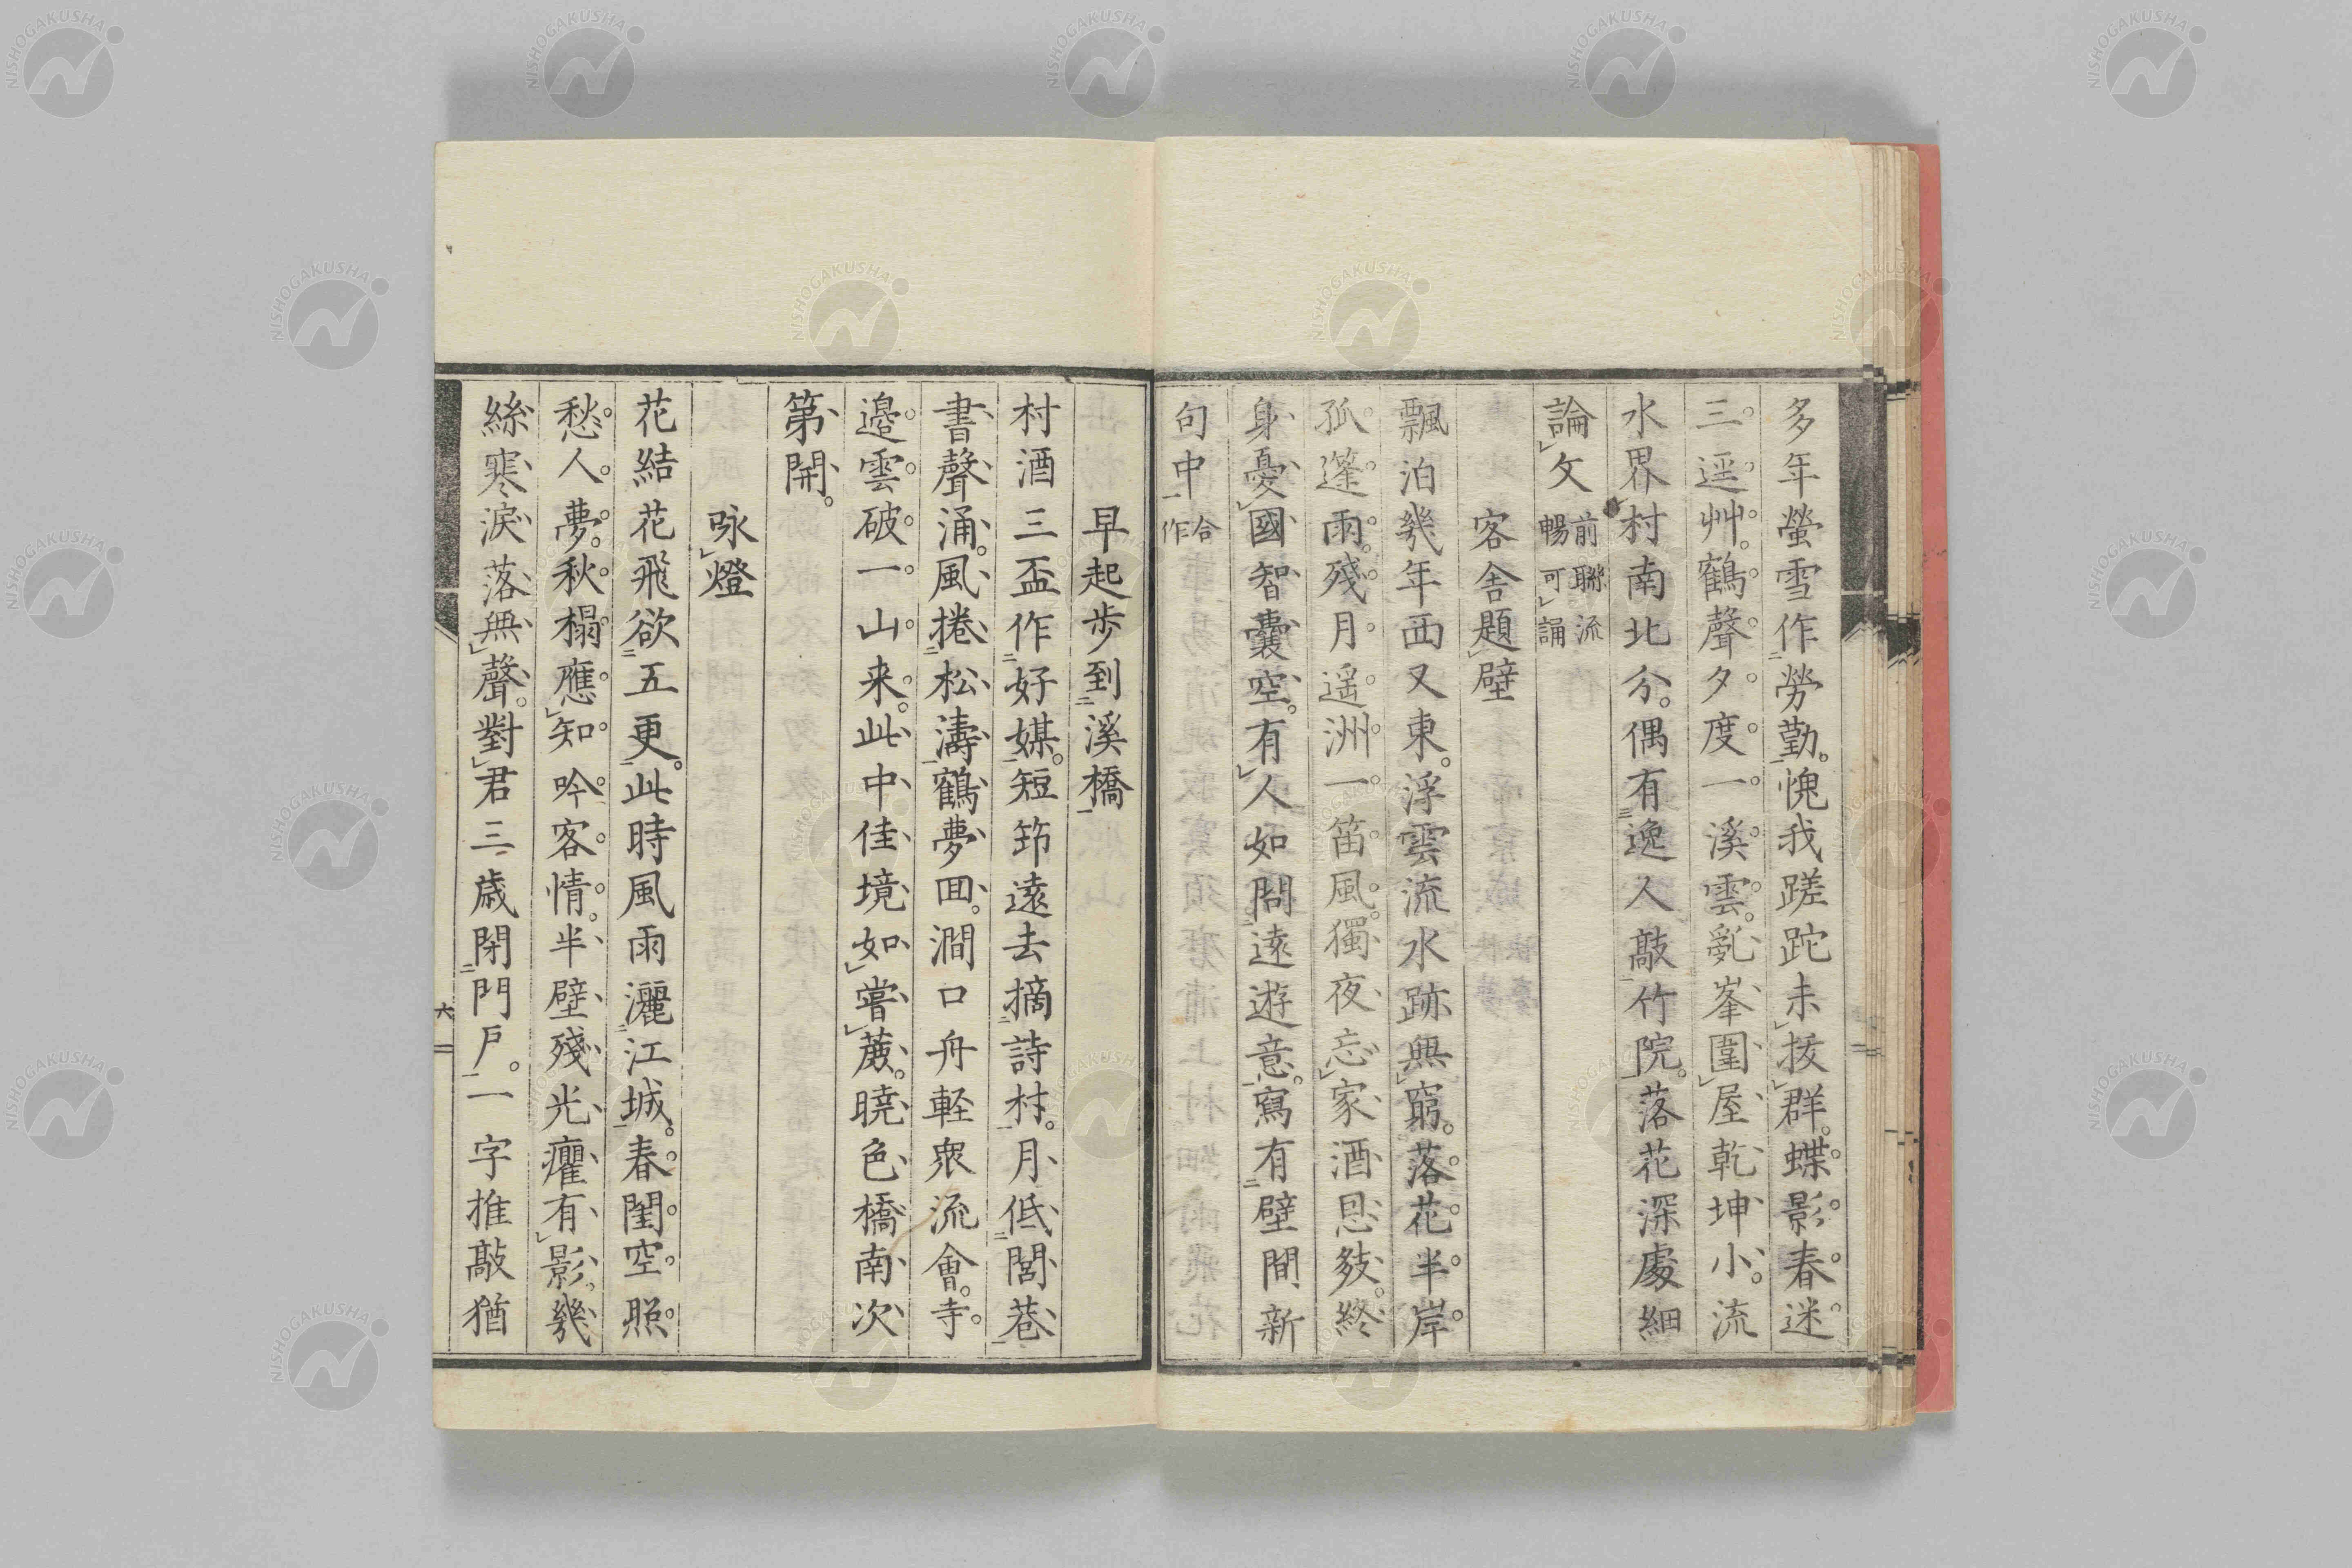 多年螢雪作勞勤。愧我蹉跎未拔群。蝶影春迷
三逕艸。鶴聲夕度一溪雲。亂峯圍屋乾坤小。流
水界村南北分。偶有逸人敲竹院。落花深處細
論文
前聯流
暢可誦
客舍題壁
飄泊幾年西又東。浮雲流水跡無窮。落花半岸
孤篷雨。殘月遥洲一笛風。獨夜忘家酒恩𤼲。終
身憂國智囊空。有人如問遠遊意。寫有壁間新
句中
合
作
早起步到溪橋
村酒三盃作好媒。短筇遠去摘詩材。月低閭巷
書聲涌。風捲松濤鶴夢回。澗口舟軽衆流會。寺
邊雲破一山来。此中佳境如嘗蔗。暁色橋南次
第開。
咏燈
花結花飛欲五更。此時風雨灑江城。春閨空照
愁人夢。秋榻應知吟客情。半壁殘光癯有影。幾
絲寒淚落無聲。對君三歲閉門戶。一字推敲猶
六
NISHOGAKUSHA